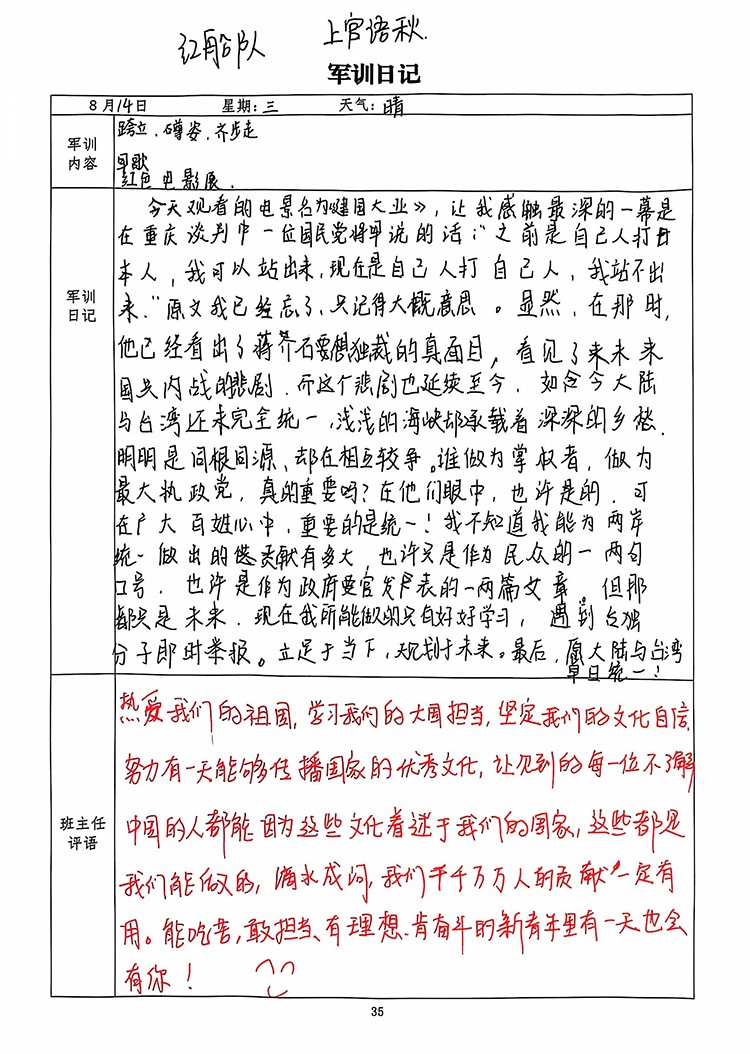 红船队 上官语秋.
军训日记
8月14日 星期:三 天气:晴
军训
内容
跨立、蹲姿、齐步走
军歌
红色电影展.
军训
日记
今天观看的电景名为《建国大业》，让我感触最深的一幕是
在重庆谈判中一位国民党将军说的话:“之前是自己人打日
本人，我可以站出来,现在是自己人打自己人，我站不出
来.”原文我已经忘了,只记得大概意思。显然，在那时,
他已经看出了蒋介石要想独裁的真面目，看见了来未来
国共内战的悲剧.而这个悲剧也延续至今.如今大陆
与台湾还未完全统一,浅浅的海峡却承载着深深的乡愁.
明明是同根同源、却在相互较争。谁做为掌权者，做为
最大执政党，真的重要吗？在他们眼中，也许是的.可
在广大百姓心中，重要的是统一！我不知道我能为两岸
统一做出的贡献有多大，也许只是作为民众的一两句
口号.也许是作为政府要官发表的一两篇文章。但那
都只是未来.现在我所能做的只有好好学习，遇到台独
分子即时举报。立足于当下，规划于未来。最后,愿大陆与台湾
早日统一！
班主任
评语
热爱我们的祖国,学习我们的大国担当,坚定我们的文化自信,
努力有一天能够传播国家的优秀文化,让见到的每一位不了解
中国的人都能因为这些文化着迷于我们的国家,这些都是
我们能做的,滴水成河,我们千千万万人的贡献一定有
用。能吃苦,敢担当、有理想、肯奋斗的新青年里有一天也会
有你！
35